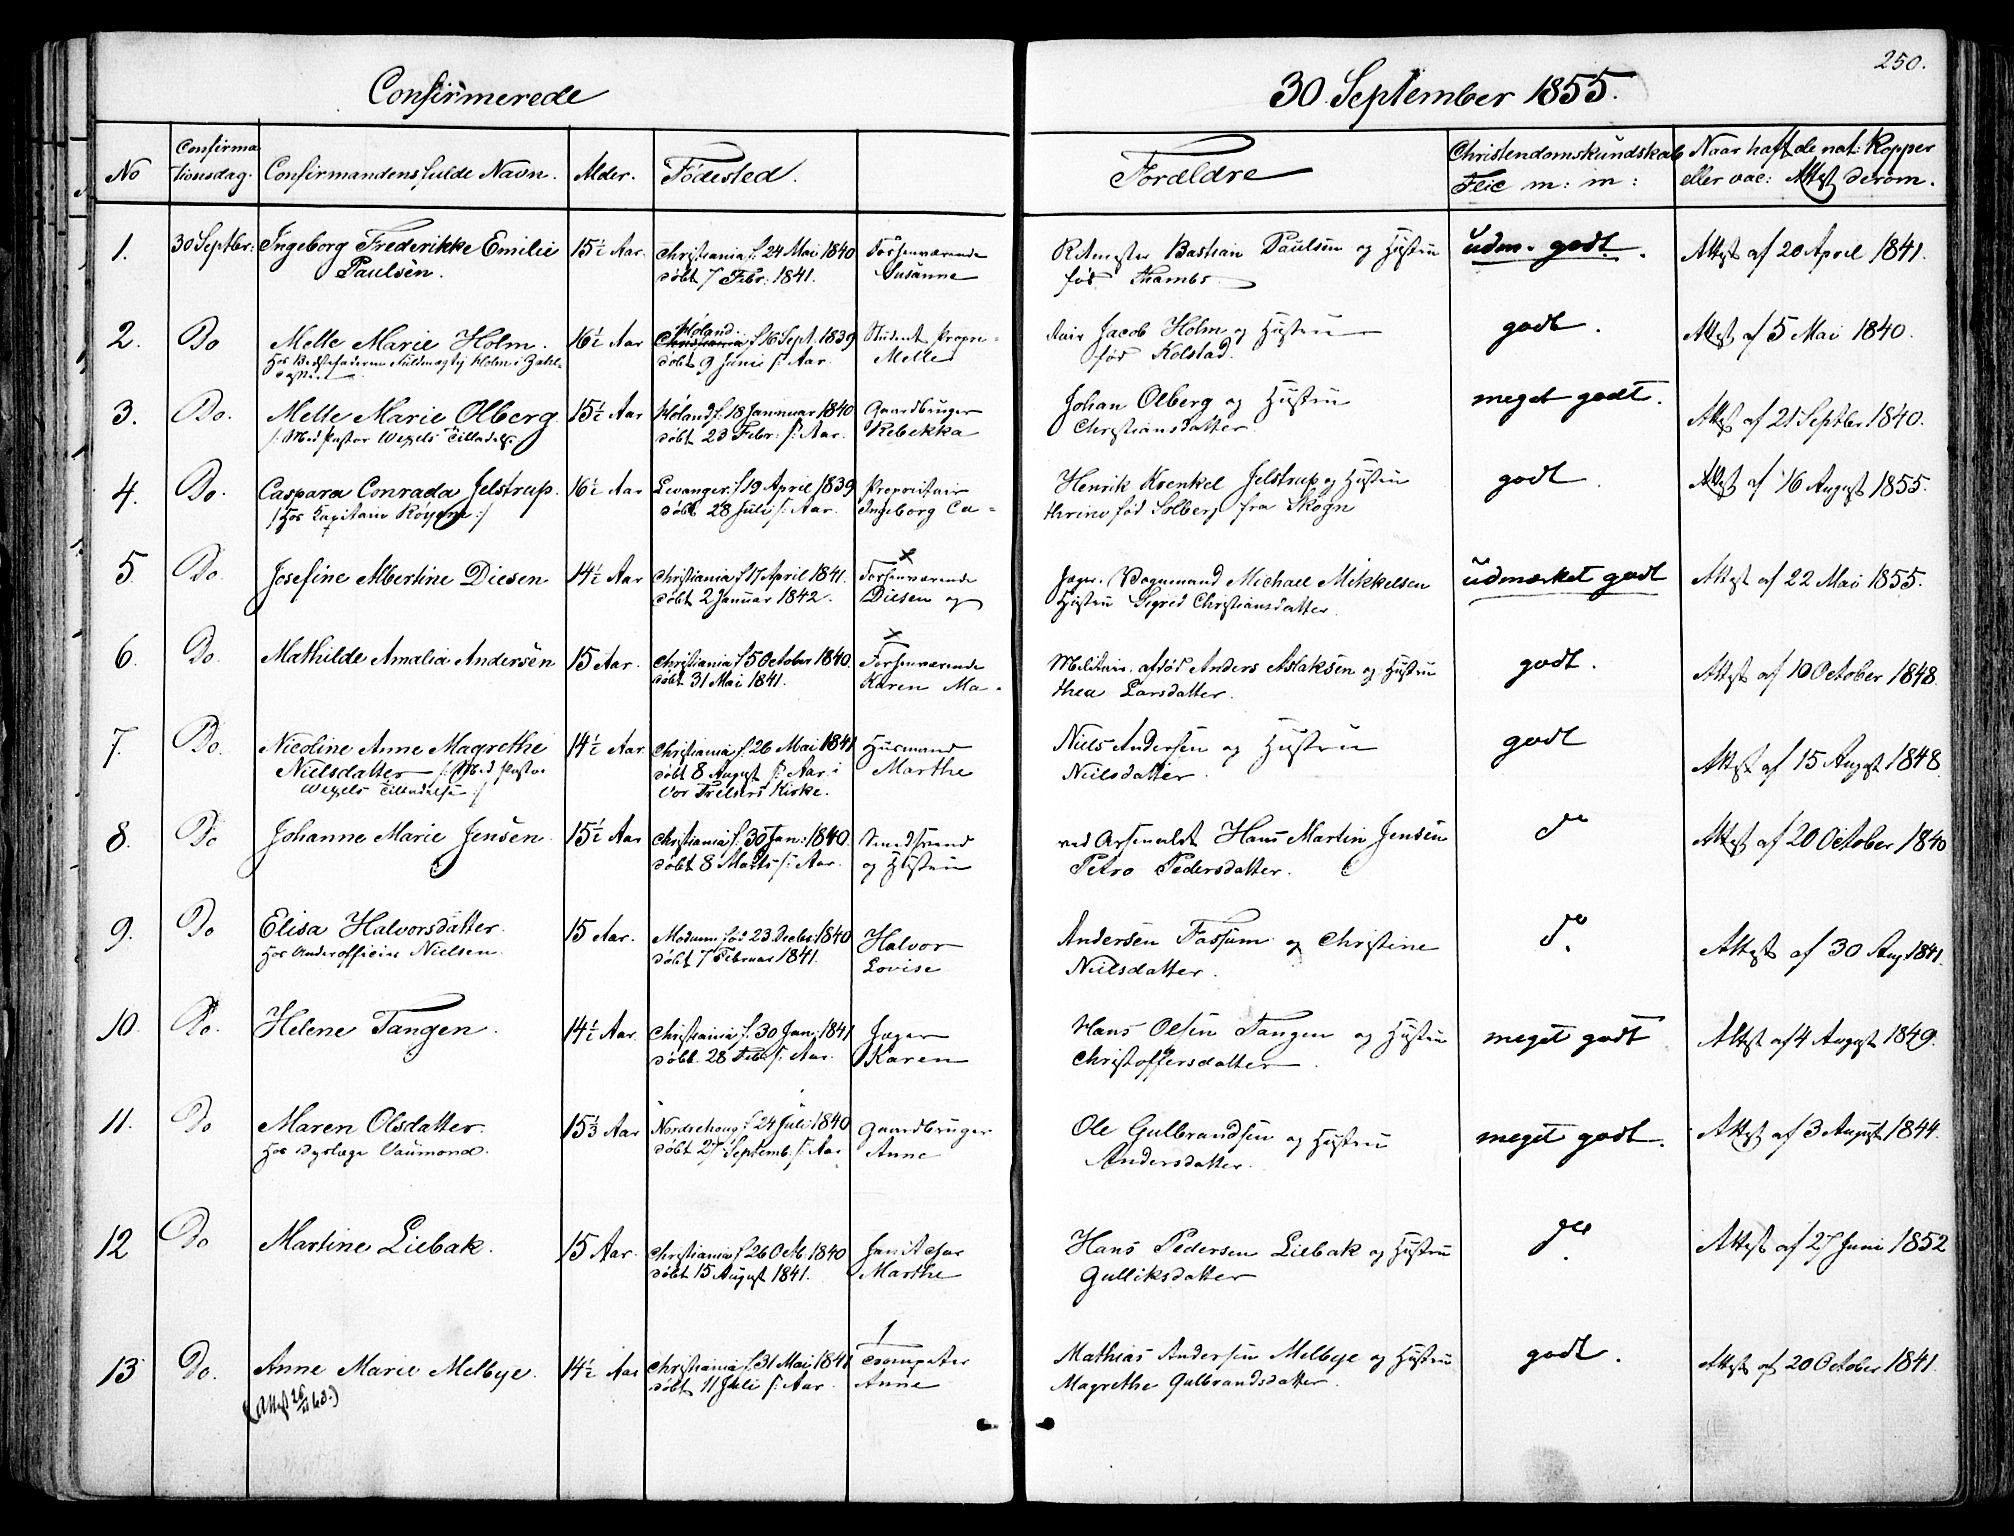 250.
Confirmerede 30 September 1855.
No Confirmationsdag. Confirmandens fulde Navn. Alder. Fødested. Forældre Christendomskundskab Flid m: m: Naar haft de nat: Kopper eller vac: Attest derom.
1. 30 Septbr: Ingeborg Frederikke Emilie 15½ Aar. Christiania f. 24 Mai 1840 Forhenværende Ritmester Bastian Paulsen og Hustru udm. godt. Attest af 20 April 1841.
Paulsen. døbt 7 Febr: 1841. Susanne fød Thambs.
2. Do Melle Marie Holm. 16½ Aar Høland. f. 16 Sept. 1839 Student Proprietair Jacob Holm og Hustru godt. Attest af 5 Mai 1840.
Hos Bedstefaderen Fuldmægtig Holm i døbt 9 Juni s: Aar. Melle fød Kolstad.
3. Do. Melle Marie Olberg 15½ Aar Høland f. 18 Januar 1840 Gaardbruger Johan Olberg og Hustru meget godt. Attest af 21 Septbr 1840.
/: Med Pastor Wexels Tilladelse døbt 23 Febr: s: Aar. Rebekka Christiansdatter.
4. Do. Caspara Conrada Jelstrup. 16½ Aar Levanger: f 19 April 1839 Proprietair Henrik Krenkel Jelstrup og Hustru godt. Attest af 16 August 1855.
/ Hos Kapitain Royem :/ døbt 28 Juli s: Aar. Ingeborg Cathrine fød Solberg fra Skogn
5 Do. Josefine Albertine Diesen 14½ Aar Christiania f 17 April 1841. Forhenværende Jæger. Vognmand Michael Mikkelsen udmærket godt Attest af 22 Mai 1855.
døbt 2 Januar 1842. Diesen og Hustru Sigrid Christiansdatter.
6. Do. Mathilde Amalia Andersen 15 Aar. Christiania f 5 October 1840. Forhenværende Militair. afdød Anders Aslaksen og Hustru godt. Attest af 10 October 1848.
døbt 31 Mai 1841. Karen Mathea Larsdatter.
7. Do. Nicoline Anne Magrethe 14½ Aar Christiania f. 26 Mai 1841 Husmand Niels Andersen og Hustru godt Attest af 15 August 1848.
Nielsdatter /: Med Pastor døbt 8 August s: Aar i Marthe Nielsdatter.
Wexels Tilladelse :/ Vor Frelsers Kirke.
8. Do Johanne Marie Jensen. 15½ Aar Christiania f. 30 Jan: 1840. Smedsvend ved Arsenalet Hans Martin Jensen do Attest af 20 October 1840
døbt 8 Marts s: Aar. og Hustru Petro Pedersdatter.
9. Do Elisa Halvorsdatter. 15 Aar. Modum fød 23 Decbr: 1840 Halvor Andersen Fossum og Christine do. Attest af 30 Aug 1841.
Hos Underofficier Nielsen. døbt 7 Februar 1841. Lovise Nielsdatter.
10. Do. Helene Tangen. 14½ Aar. Christiania f. 30 Jan: 1841 Jæger Hans Olsen Tangen og Hustru meget godt Attest af 4 August 1849.
døbt 28 Feb: s: Aar. Karen Christoffersdatter.
11. Do Maren Olsdatter. 15⅓ Aar Nordrehoug f. 24 Juli 1840 Gaardbruger Ole Gulbrandsen og Hustru meget godt. Attest af 3 August 1844.
Hos Dyrlæge Vaumond. døbt 27 Septemb. s: Aar Anne Andersdatter.
12 Do Martine Liebak. 15 Aar. Christiania f 26 Octb 1840 Janitschar Hans Pedersen Liebak og Hustru do. Attest af 27 Juni 1852
døbt 15 August 1841. Marthe Gulliksdatter
13 Do. Anne Marie Melbye. 14½ Aar Christiania f. 31 Mai 1841 Trompeter Mathias Andersen Melbye og Hustru godt. Attest af 20 October 1841.
(Attest 26/11 60.) døbt 11 Juli s: Aar. Anne Magrethe Gulbrandsdatter.